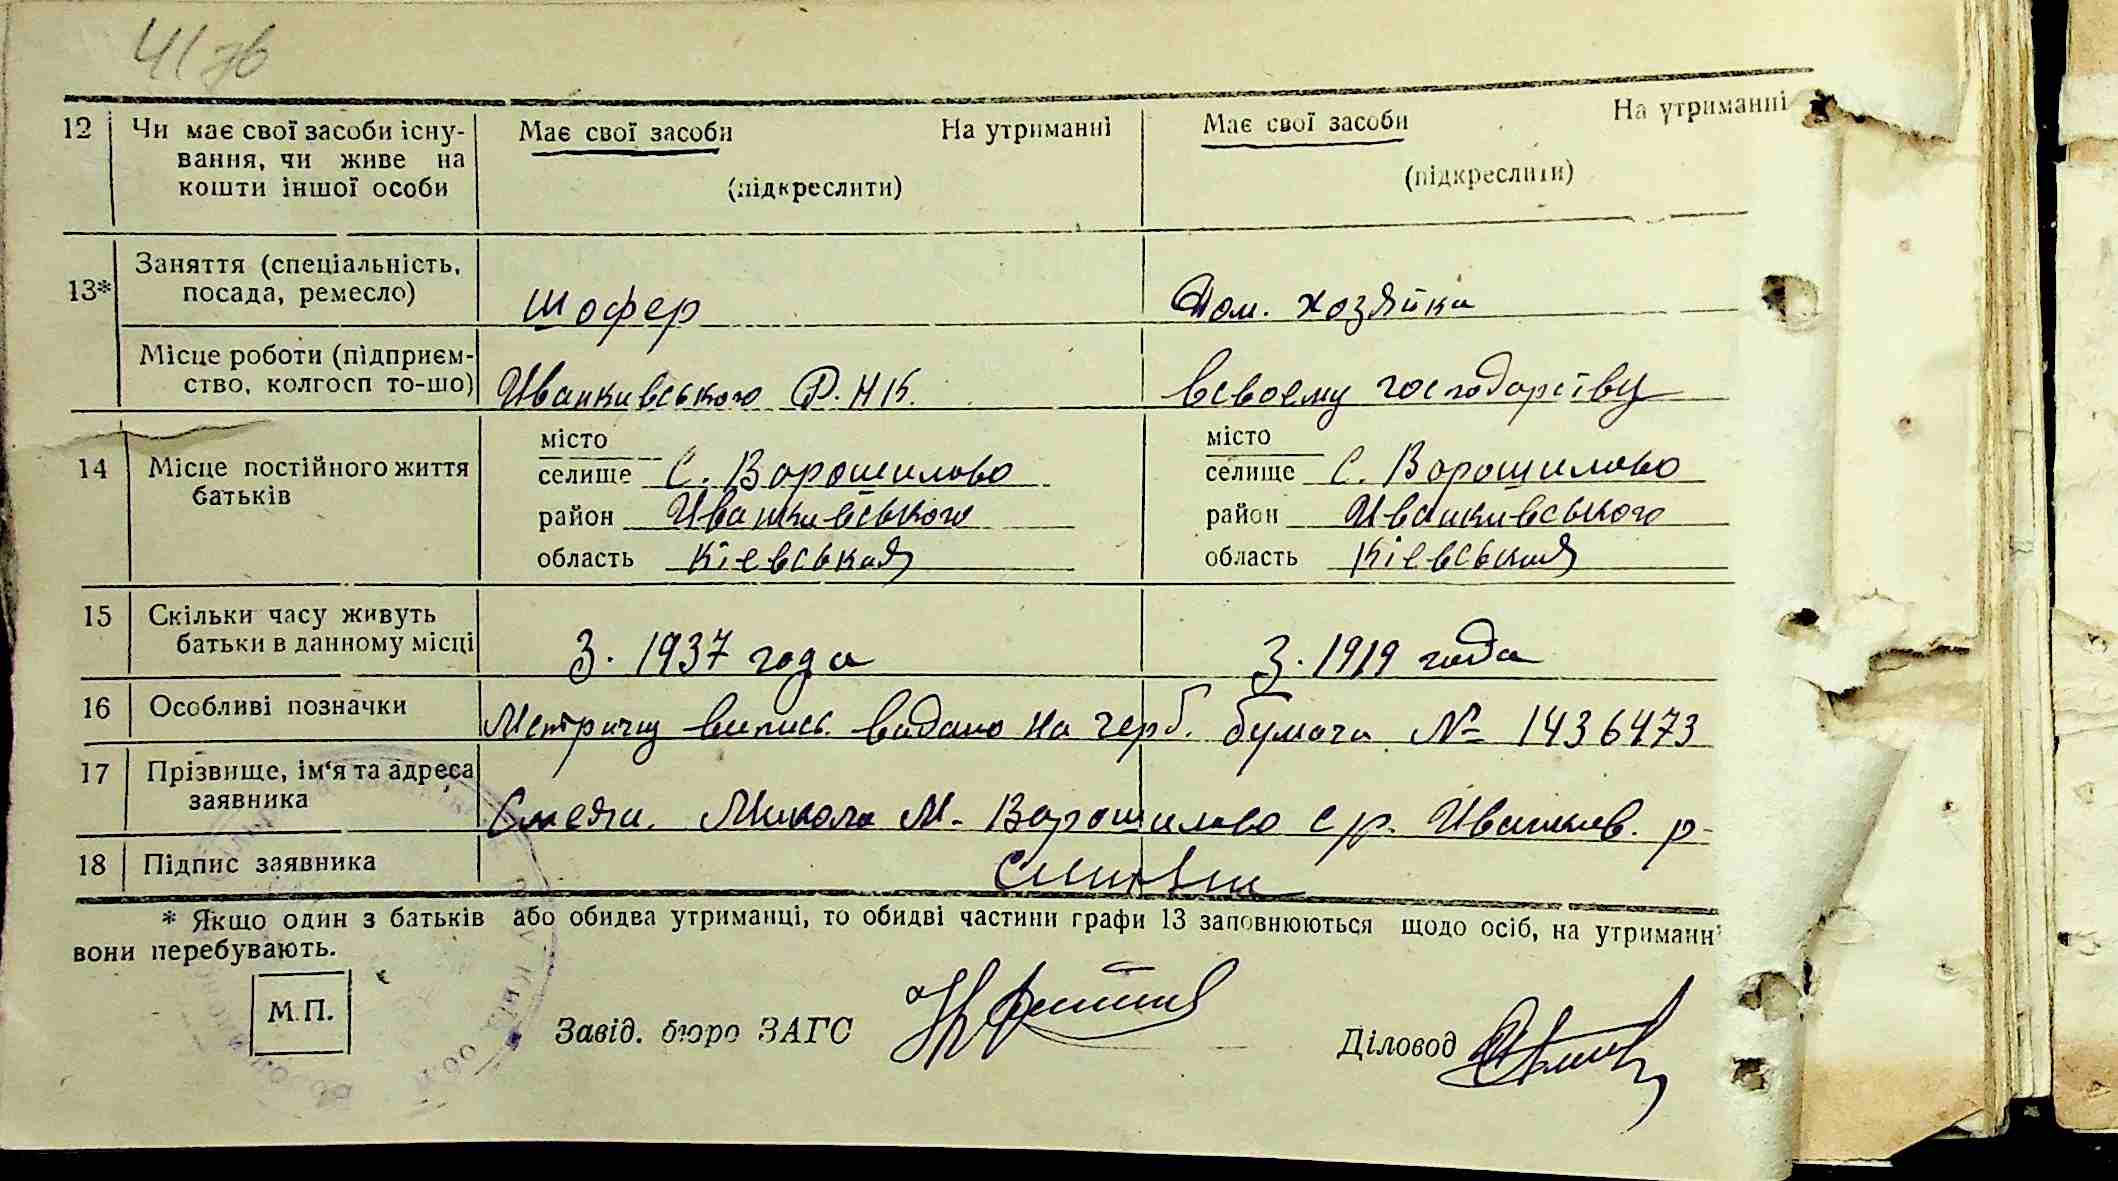 41 зв
12 Чи має свої засоби існу-
вання, чи живе на
кошти іншої особи
Має свої засоби На утриманні
(підкреслити)
Має свої засоби На утриманні
(підкреслити)
13* Заняття (спеціальність,
посада, ремесло)
шофер
Дом. хозяйка
Місце роботи (підприєм-
ство, колгосп то-що)
Иванкивського Р.Н.К.
всвоему господарству
14 Місце постійного життя
батьків
місто
селище С. Ворошилово
район Иванкивського
область Кіевськая
місто
селище С. Ворошилово
район Иванкивського
область Кіевськая
15 Скільки часу живуть
батьки в данному місці
З. 1937 года
З. 1919 года
16 Особливі позначки
Метричну випись видано на герб. бумага № 1436473
17 Прізвище, ім'я та адреса
заявника
Микола М. Ворошилово с/р. Иванкив. р-
18 Підпис заявника
* Якщо один з батьків або обидва утриманці, то обидві частини графи 13 заповнюються щодо осіб, на утриманні
вони перебувають.
М.П.
Завід. бюро ЗАГС
Діловод